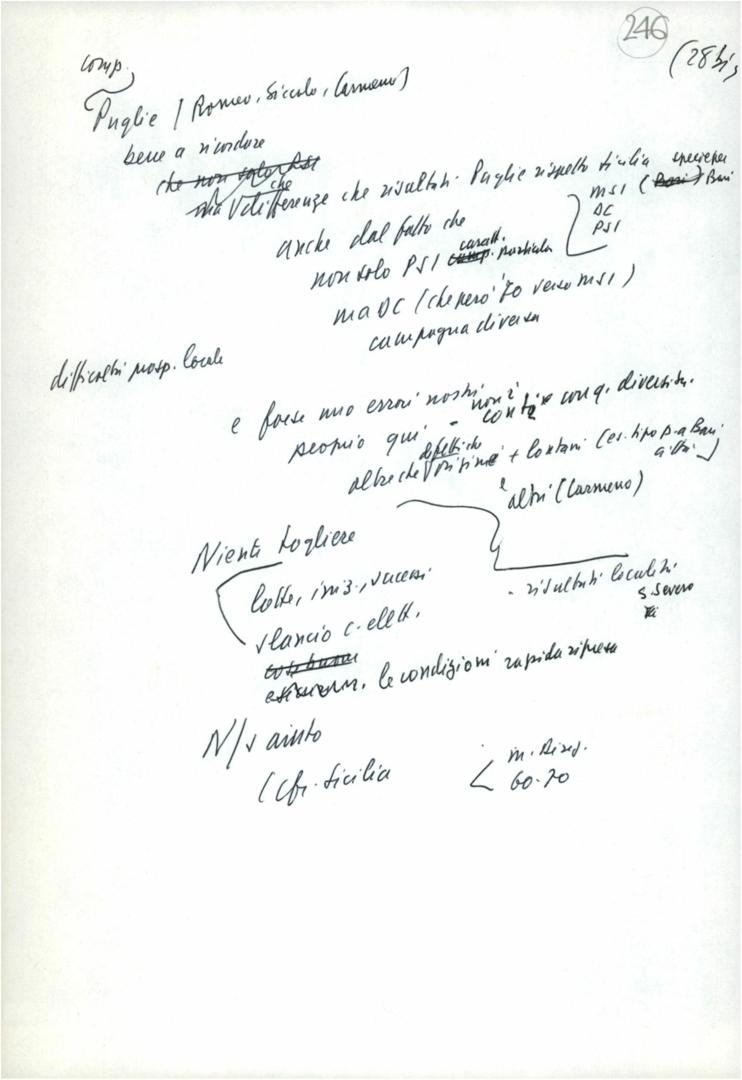 246
(28 bis)
comp.
Puglie (Romeo, Siccolo, Carmeno)
bene a ricordare
che non solo PSI
ma che differenze che risultati Puglie rispetto Sicilia specie per
MSI (Bari) Bari
DC
PSI
anche dal fatto che
non solo PSI caratt. particolare
ma DC (che però '70 verso MSI)
campagna diversa
difficoltà prosp. locale
e forse mio errori nostri
proprio qui - non è
conta
diversità.
oltre che difetti che + lontani (es. tipo P. a Bari
altri)
e altri (Carmeno)
Niente togliere
lotte, iniz., successi
slancio c. elett.
le condizioni rapida ripresa
- risultati località
S. Severo
N/s aiuto
(cfr. Sicilia
60-70